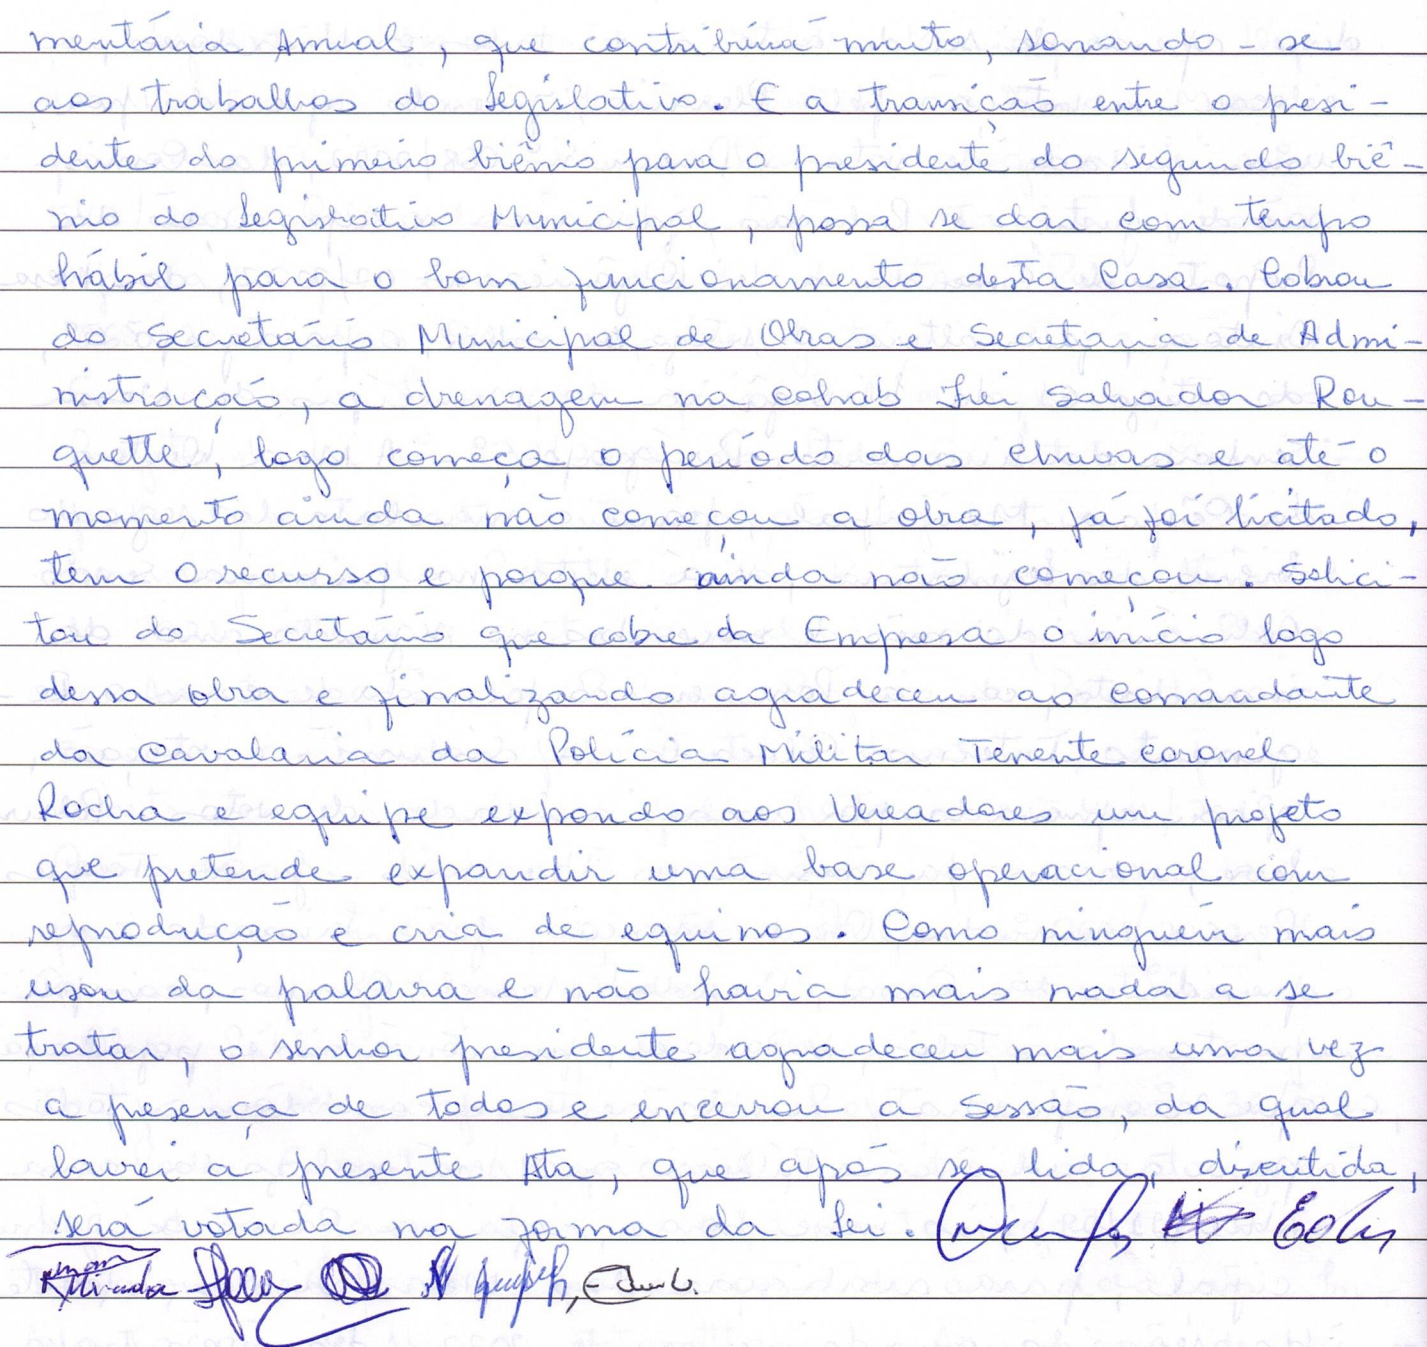 mentária Anual, que contribuirá muito, somando-se
aos trabalhos do Legislativo. E a transição entre o presi-
dente do primeiro biênio para o presidente do segundo biê-
nio do Legislativo Municipal, possa se dar com tempo
hábil para o bom funcionamento desta Casa. Cobrou
do Secretário Municipal de Obras e Secretaria de Admi-
nistração, a drenagem na cohab Frei Salvador Rou-
quette, logo começa o período das chuvas e até o
momento ainda não começou a obra, já foi licitado,
tem o recurso e porque ainda não começou. Solici-
tou do Secretário que cobre da Empresa o início logo
dessa obra e finalizando agradeceu ao comandante
da Cavalaria da Polícia Militar Tenente Coronel
Rocha e equipe expondo aos Vereadores um projeto
que pretende expandir uma base operacional com
reprodução e cria de equinos. Como ninguém mais
usou da palavra e não havia mais nada a se
tratar, o senhor presidente agradeceu mais uma vez
a presença de todos e encerrou a Sessão, da qual
lavrei a presente Ata, que após ser lida, discutida,
será votada na forma da Lei.
RMiranda